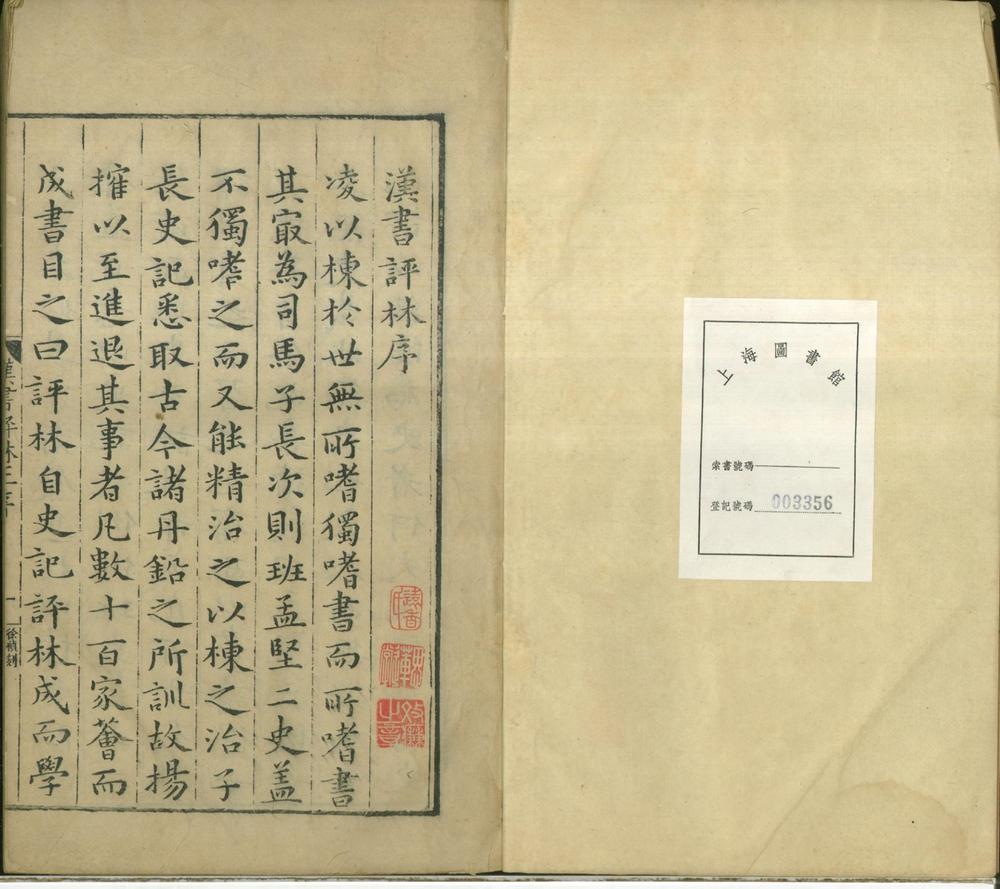 上海圖書館
索書號碼
登記號碼 003356
漢書評林序
凌以棟於世無所嗜獨嗜書而所嗜書
其㝡為司馬子長次則班孟堅二史盖
不獨嗜之而又能精治之以棟之治子
長史記悉取古今諸丹鉛之所訓故揚
搉以至進退其事者凡數十百家薈而
成書目之曰評林自史記評林成而學
漢書評林王序
一
徐禎刻